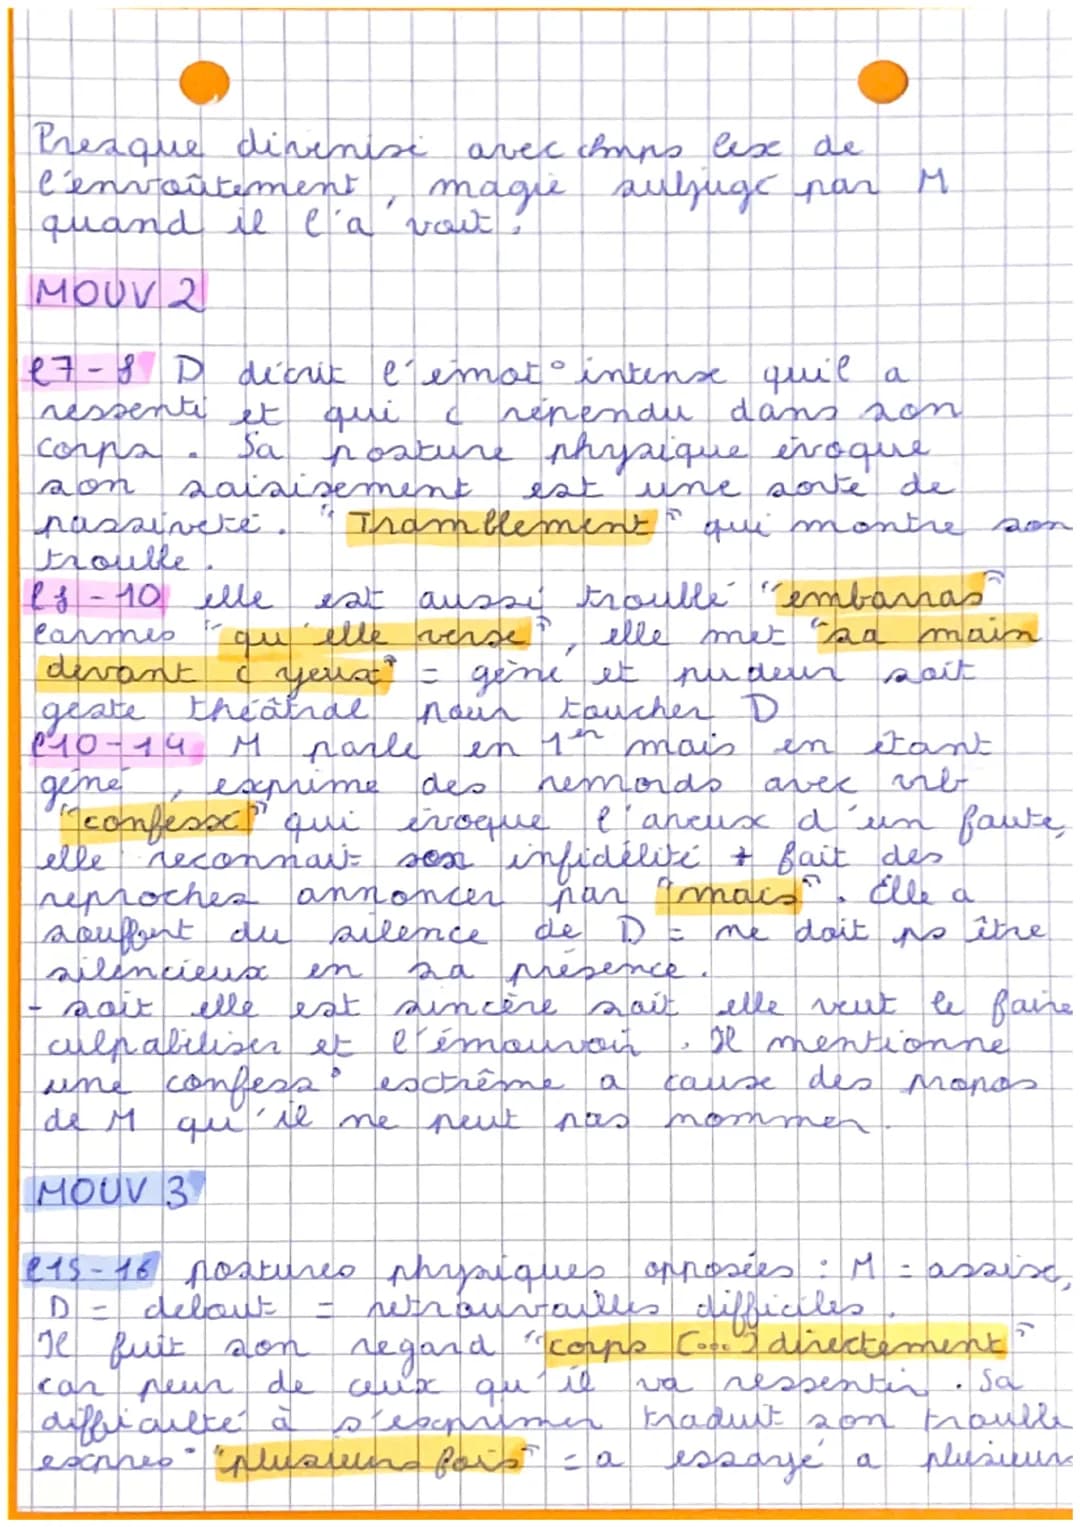 Presque divinisé avec chmps lex de
l'envoûtement, magie subjugé par M
quand il l'a voit.
MOUV 2
l7-8 D décrit l'émot° intense quil a
ressenti et qui c répendu dans son
corps. Sa posture physique évoque
son saisisement est une sorte de
passiveté. "Tramblement" qui montre son
trouble.
l8-10 elle est aussi troublé "embarras"
larmes "qu'elle verse", elle met "sa main
devant c yeux" = gêné et pudeur soit
geste théâtral pour toucher D
l10-14 M parle en 1er mais en étant
géné, exprime des remords avec vrb
"confesse" qui évoque l'aveux d'un faute,
elle reconnait son infidélité + fait des
reproches annoncer par "mais". Elle a
souffert du silence de D = ne doit ps être
silencieux en sa présence.
- soit elle est sincère soit elle veut le faire
culpabiliser et l'émouvoir. Il mentionne
une confess° extrême a cause des propos
de M qu'il ne peut pas nommer.
MOUV 3
l15-16 postures physiques opposées : M = assise,
D = debout = retrouvailles difficiles.
Il fuit son regard "corps [...] directement"
car peur de ceux qu'il va ressentir. Sa
difficulté à s'exprimer traduit son trouble
expres° "plusieurs fois" = a essayé a plusieurs